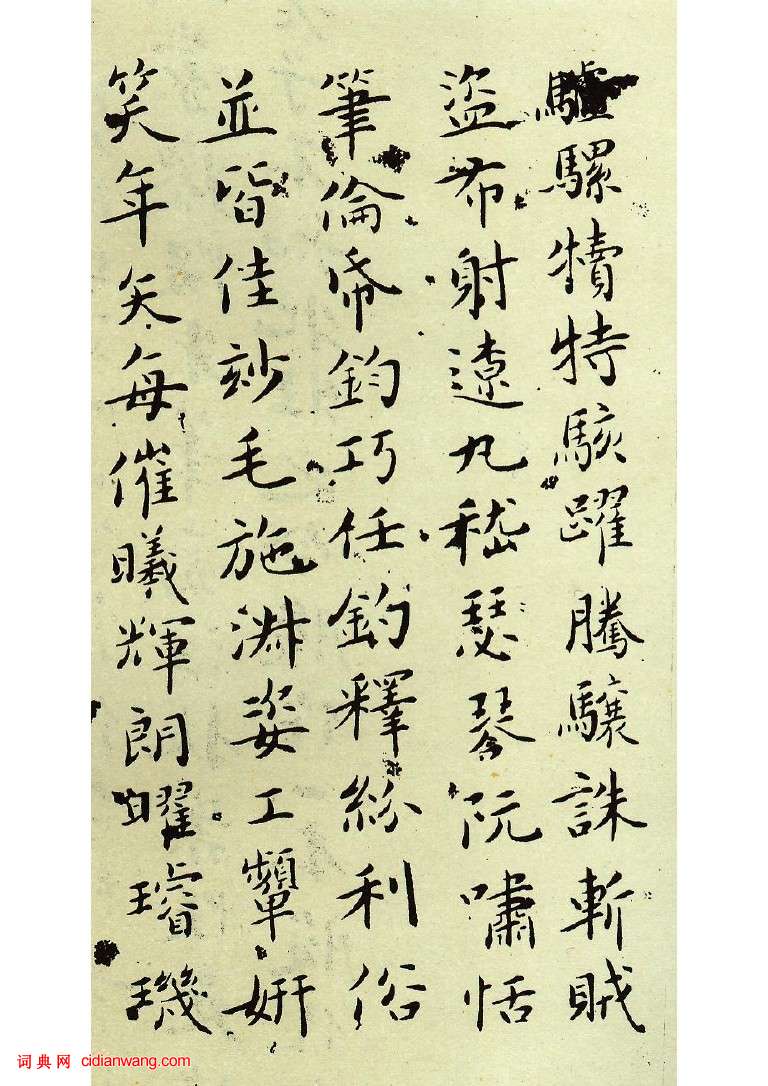 驢騾犢特駭躍騰驤誅斬賊
盜布射遼丸嵇瑟琴阮嘯恬
筆倫帋鈞巧任釣釋紛利俗
並皆佳玅毛施淑姿工顰妍
笑年矢每催曦輝朗曜璿璣
词典网 cidianwang.com